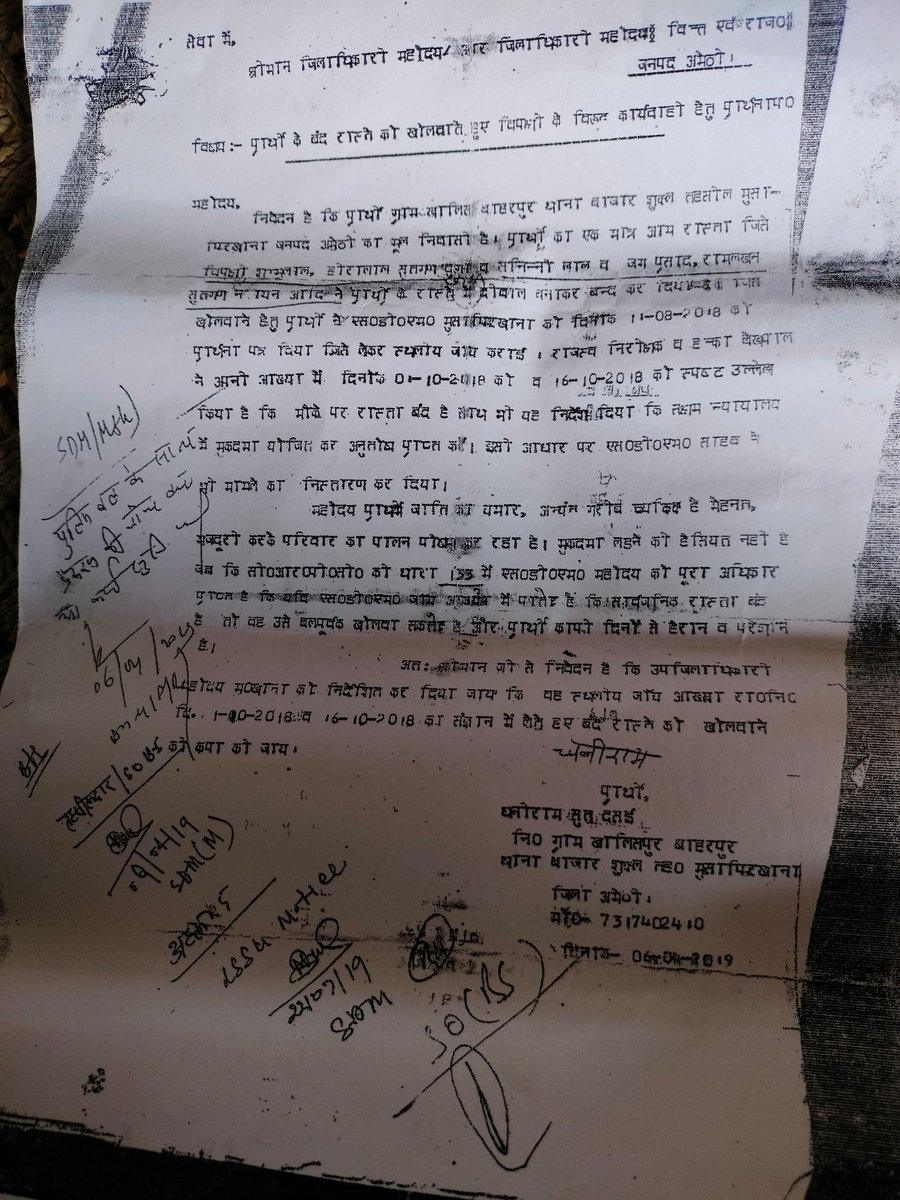 सेवा में,
श्रीमान जिलाधिकारी महोदय/ अपर जिलाधिकारी महोदय वित्त एवं राज0
जनपद अमेठी।
विषय:- प्रार्थी के बंद रास्ते को खोलवाते हुए विपक्षी के विरूद्ध कार्यवाही हेतु प्रार्थनापत्र
महोदय,
निवेदन है कि प्रार्थी ग्राम खालिसपुर बाहरपुर थाना बाजार शुक्ल तहसील मुसा-
फिरखाना जनपद अमेठी का मूल निवासी है। प्रार्थी का एक मात्र आम रास्ता जिसे
विपक्षी शुभलाल, हीरालाल सुतगण व लाल व जग प्रसाद, रामलखन
सुतगण आदि ने प्रार्थी के रास्ते में दीवाल बनाकर बन्द कर दिया है। जिसे
खोलवाने हेतु प्रार्थी ने एस0डी0एम0 मुसाफिरखाना को दिनांक 11-08-2018 को
प्रार्थना पत्र दिया जिसे लेकर स्थलीय जांच कराई। राजस्व निरीक्षक व हल्का लेखपाल
ने अपनी आख्या में दिनांक 01-10-2018 को व 16-10-2018 को स्पष्ट उल्लेख
किया है कि मौके पर रास्ता बंद है साथ भी यह निर्देश दिया कि सक्षम न्यायालय
में मुकदमा योजित कर अनुतोष प्राप्त करें। इसी आधार पर एस0डी0एम0 साहब ने
भी मामले का निस्तारण कर दिया।
महोदय प्रार्थी जाति का चमार, अत्यंत गरीब व्यक्ति है मेहनत,
मजदूरी करके परिवार का पालन पोषण कर रहा है। मुकदमा लड़ने की हैसियत नहीं है
जब कि सी0आर0पी0सी0 की धारा 133 में एस0डी0एम0 महोदय को पूरा अधिकार
प्राप्त है कि यदि एस0डी0एम0 जांच आख्या में पाते हैं कि सार्वजनिक रास्ता बंद
है तो वह उसे बलपूर्वक खोलवा सकते है और प्रार्थी काफी दिनों से हैरान व परेशान
है।
अत: श्रीमान जी से निवेदन है कि उपजिलाधिकारी
महोदय मु0खाना को निर्देशित कर दिया जाय कि वह स्थलीय जांच आख्या रा0नि0
दि. 1-10-2018 व 16-10-2018 का संज्ञान में लेते हुए बंद रास्ते को खोलवाने
की कृपा की जाय।
धनीराम
प्रार्थी,
धनीराम सुत दसई
नि0 ग्राम खालिसपुर बाहरपुर
थाना बाजार शुक्ल तह0 मुसाफिरखाना
जिला अमेठी।
मो0- 7317402410
दिनांक- 06-04-2019
SDM/MSK
पुलिस बल के साथ
06/04/2019
तहसीलदार/SO B.S
09/04/19
SDM(M)
22/04/19